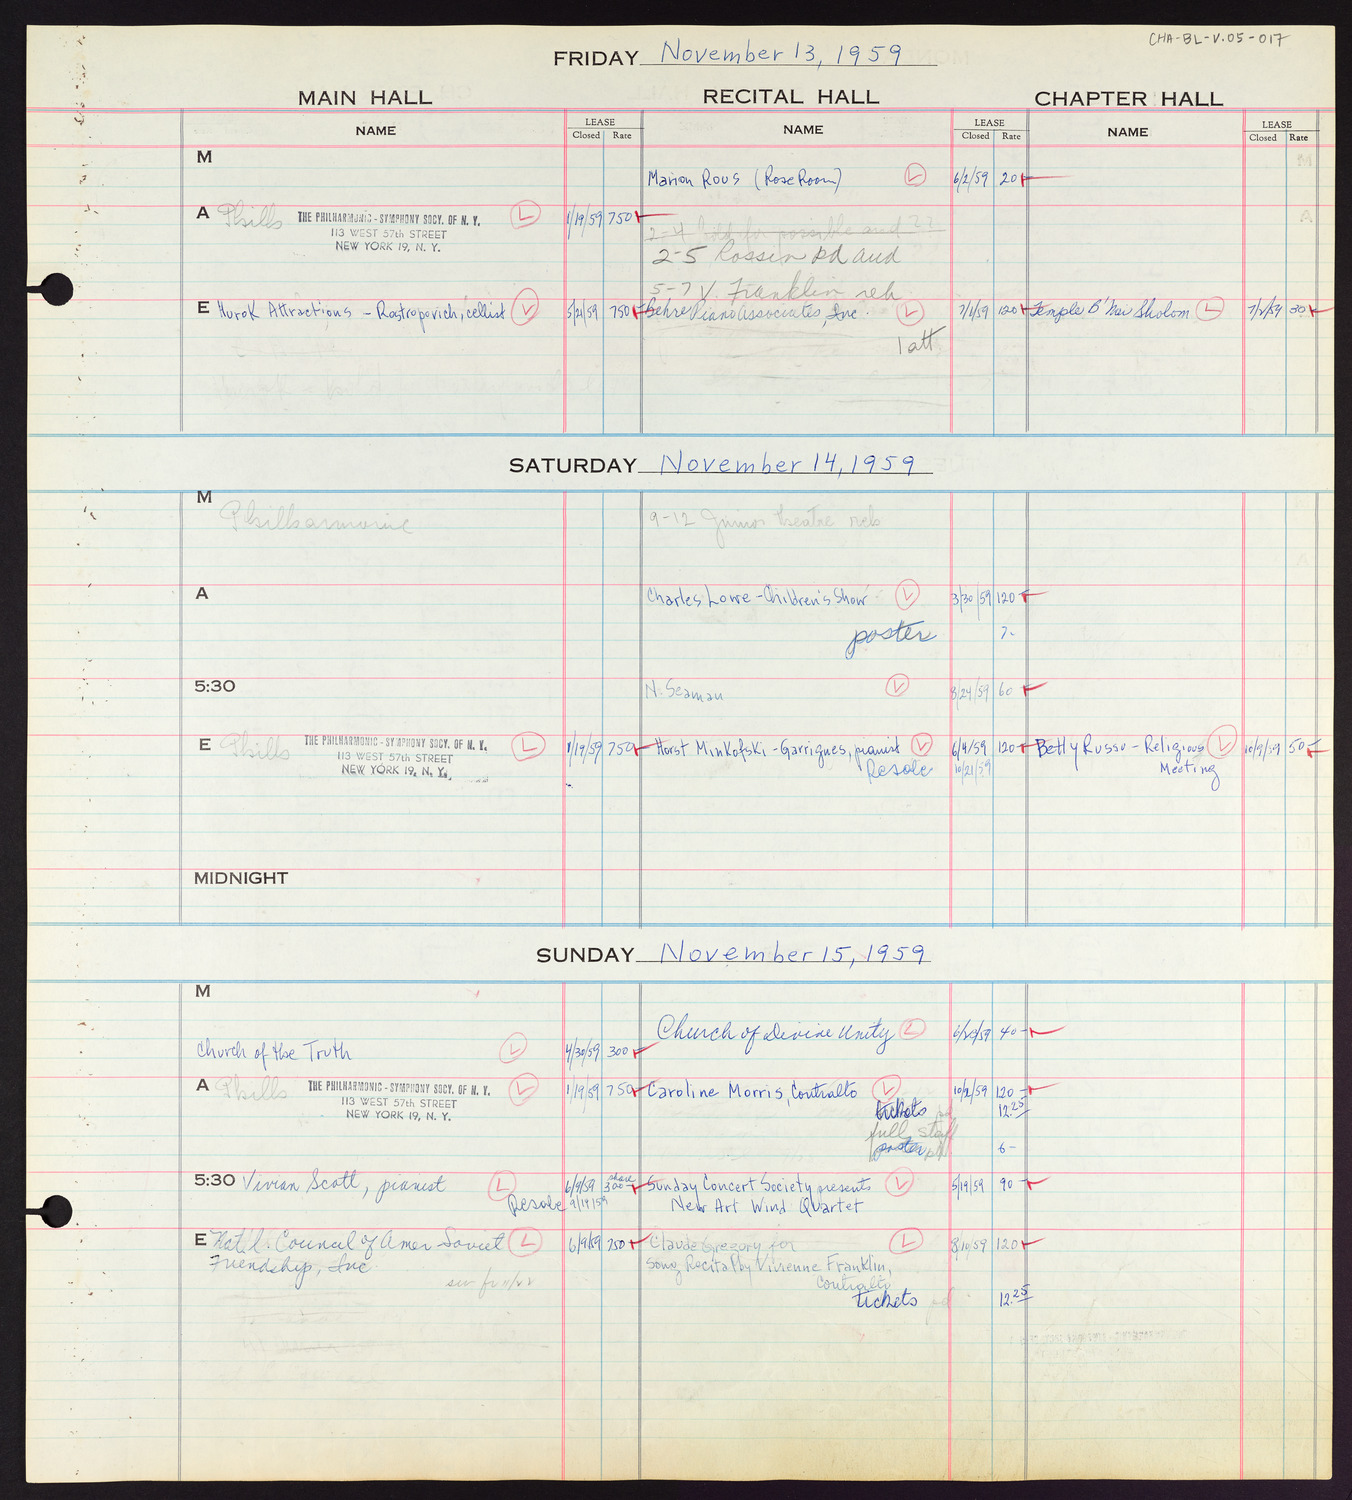 CHA-BL-V.05-017
FRIDAY November 13, 1959
MAIN HALL RECITAL HALL CHAPTER HALL
NAME LEASE Closed Rate NAME LEASE Closed Rate NAME LEASE Closed Rate
M
Marion Rous (Rose Room) L 6/2/59 20
A Phills THE PHILHARMONIC-SYMPHONY SOCY. OF N. Y. L 1/19/59 750
113 WEST 57th STREET
NEW YORK 19, N. Y.
2-4 hold for possible aud ??
2-5 Rossin pd aud
5-7 V. Franklin reh
E Hurok Attractions - Rostropovich, cellist L 750 Behre Piano Associates, Inc. L 7/1/59 120 Temple B'nai Sholom L 7/2/59 30
1 att
SATURDAY November 14, 1959
M Philharmonic 9-12 Junior theatre reh
A Charles Lowe - Children's Show L 3/30/59 120
poster 7-
5:30 N. Seaman L 8/24/59 60
E Phills THE PHILHARMONIC-SYMPHONY SOCY. OF N. Y. L 1/19/59 750 Horst Minkofski-Garrigues, pianist L 6/9/59 120 Betty Russo - Religious L 10/9/59 50
113 WEST 57th STREET
NEW YORK 19, N. Y.
Resale 10/21/59
Meeting
MIDNIGHT
SUNDAY November 15, 1959
M
Church of Divine Unity L 40-
Church of the Truth L 4/30/59 300
A Phills THE PHILHARMONIC-SYMPHONY SOCY. OF N. Y. L 1/19/59 750 Caroline Morris, Contralto L 10/2/59 120-
113 WEST 57th STREET
NEW YORK 19, N. Y.
tickets pd 12.25
full staff
poster pd 6-
5:30 Vivian Scott, pianist L 6/9/59 300 Sunday Concert Society presents L 5/19/59 90-
Resale 9/14/59 New Art Wind Quartet
E Nat'l. Council of Amer. Soviet L 6/9/59 750 Claude Gregory for L 8/10/59 120
Friendship, Inc. Song Recital by Vivienne Franklin,
Contralto
tickets pd 12.25